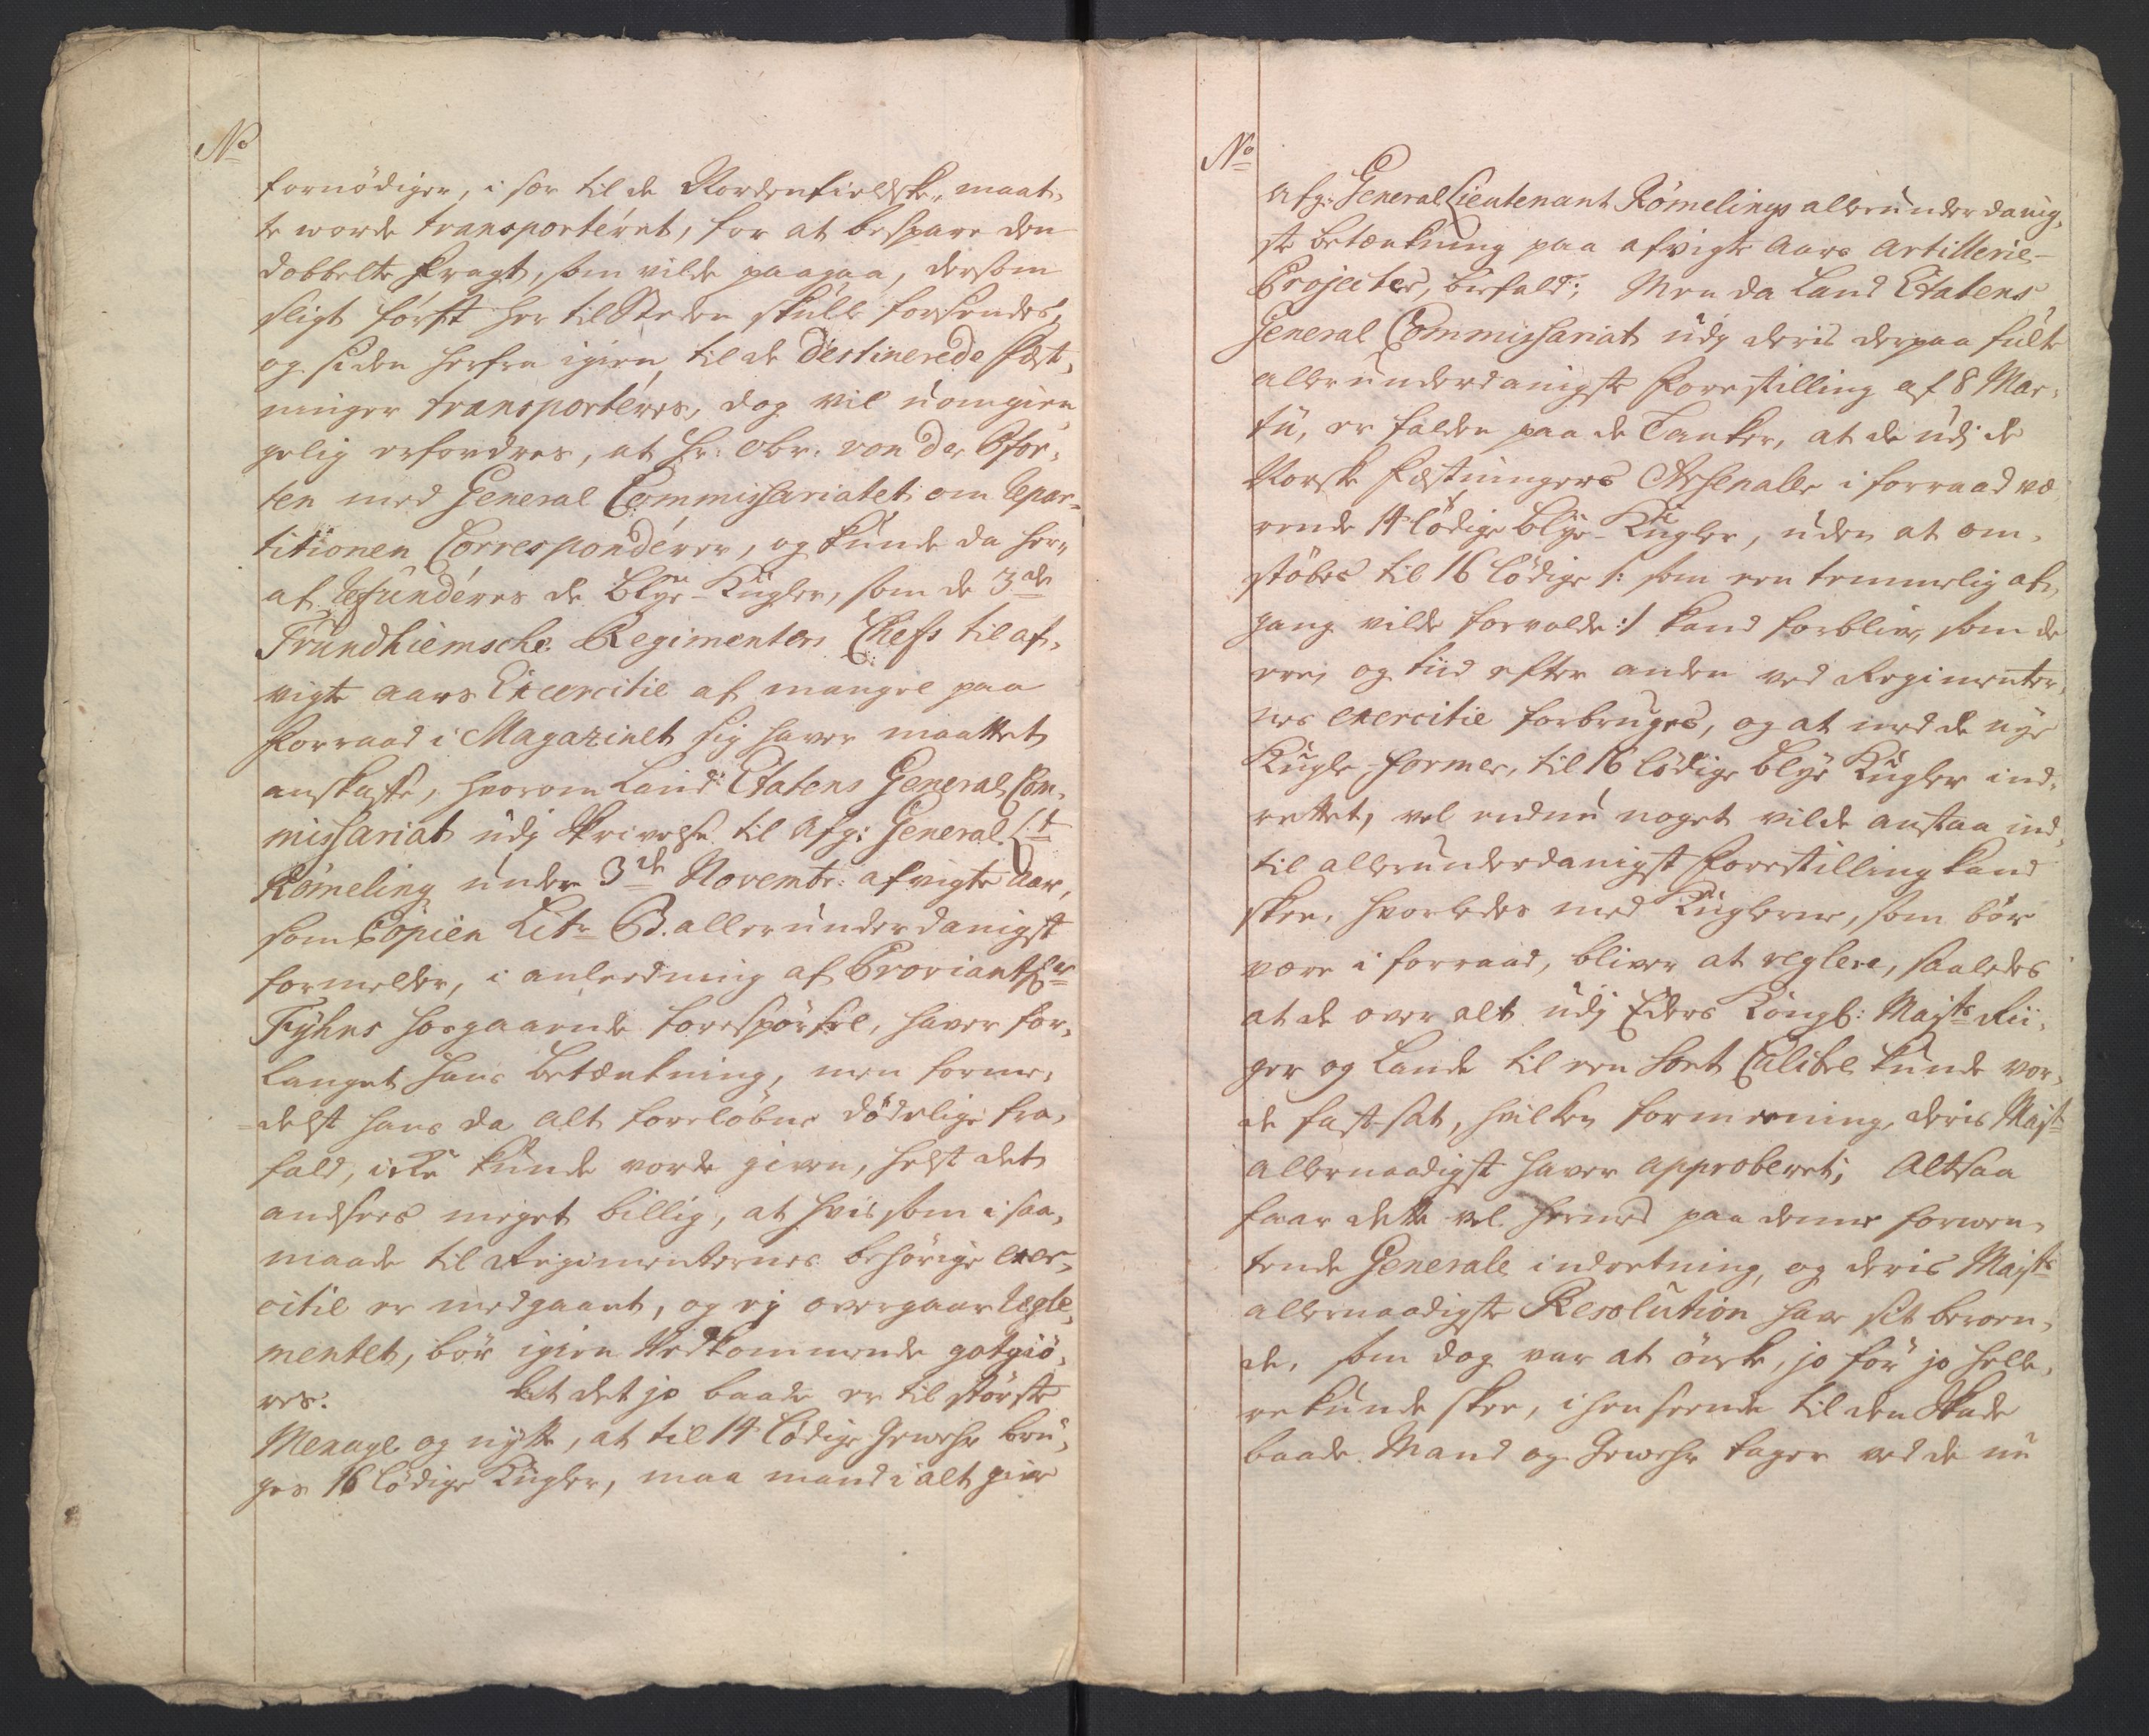 No
fornödiger, i sær til de Nordenfieldske, maat-
te worde transportéret, for at bespare den
dobbelte Fragt, som vilde paagaa, dersom
sligt först her til Steden skulle forsendes,
og siden herfra igien til de destinerede Fæst-
ninger transportéres, dog vil uomgien-
gelig erfordres, at Hr: Obr: von der Pfor-
ten med General Commissariatet om Repar-
titionen Correspondérer, og kunde da her-
af Refundéres de Blye-Kugler, som de 3de
Trundhiemsche Regimenters Chefs til af-
vigte Aars Excercitie af mangel paa
Forraad i Magazinet sig haver maattet
anskaffe, hvorom Land-Etatens General Com-
missariat udj Skrivelse til Afg: General Lt
Römeling under 3de Novembr: afvigte Aar,
som Copien Litr B. allerunderdanigst
formelder, i anledning af Proviantskr
Tyhns hosgaaende forespörsel, haver for-
langet hans Betænkning, men forme-
delst hans da alt foreløbne dödelige fra-
fald, icke kunde vorde given, helst det
andsees meget billig, at hvis som i saa-
maade til Regimenternes behörige exer-
citie er medgaaet, og ej overgaar Regle-
mentet, bör igien Vedkommende gotgiö-
res. At det jo baade er til störste
Menage og nytte, at til 14 Lödige Gewehr bru-
ges 16 lödige Kugler, maa mand i alt give
No
Afg: General Lieutenant Römelings allerunderdanig-
ste betænkning paa afvigte Aars Artillerie-
Projecter, biefald; Men da Land Etatens
General Commissariat udj deris derpaa fulte
allerunderdanigste Forestilling af 8 Mar-
tii, er falden paa de Tanker, at de udj de
Norske Fæstningers Arsenaler i forraad væ-
rende 14 lödige Blye-Kugler, uden at om-
stöbes til 16 lödige /: som een temmelig af-
gang vilde forvolde :/ kand forblive, som de
ere, og tiid efter anden ved Regimenter-
nes exercitie forbruges, og at med de nye
Kugle-former, til 16 lödige blye Kugler ind-
rettet, vel endnu noget vilde anstaa ind-
til allerunderdanigst Forestilling kand
skee, hvorledes med Kuglerne, som bör
være i forraad, bliver at reglere, saaledes
at de over alt udj Eders Kongl: Majts Rii-
ger og Lande til een Sort Calibre kunde vor-
de fast-sat, hvilken formeening, deris Majt
allernaadigst haver approberet; Altsaa
faar dette vel hermed paa denne forwen-
tende Generale indretning, og deris Majts
allernaadigste Resolution have sit beroen-
de, som dog var at önske, jo för jo helle-
re kunde skee, i henseende til den Skade
baade Mand og Gewehr tager ved de nu